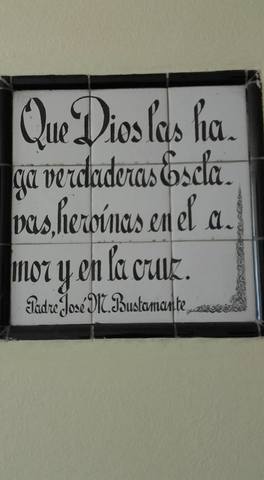 Que Dios las ha-
ga verdaderas Escla-
vas, heroínas en el a-
mor y en la cruz.
Padre José M. Bustamante